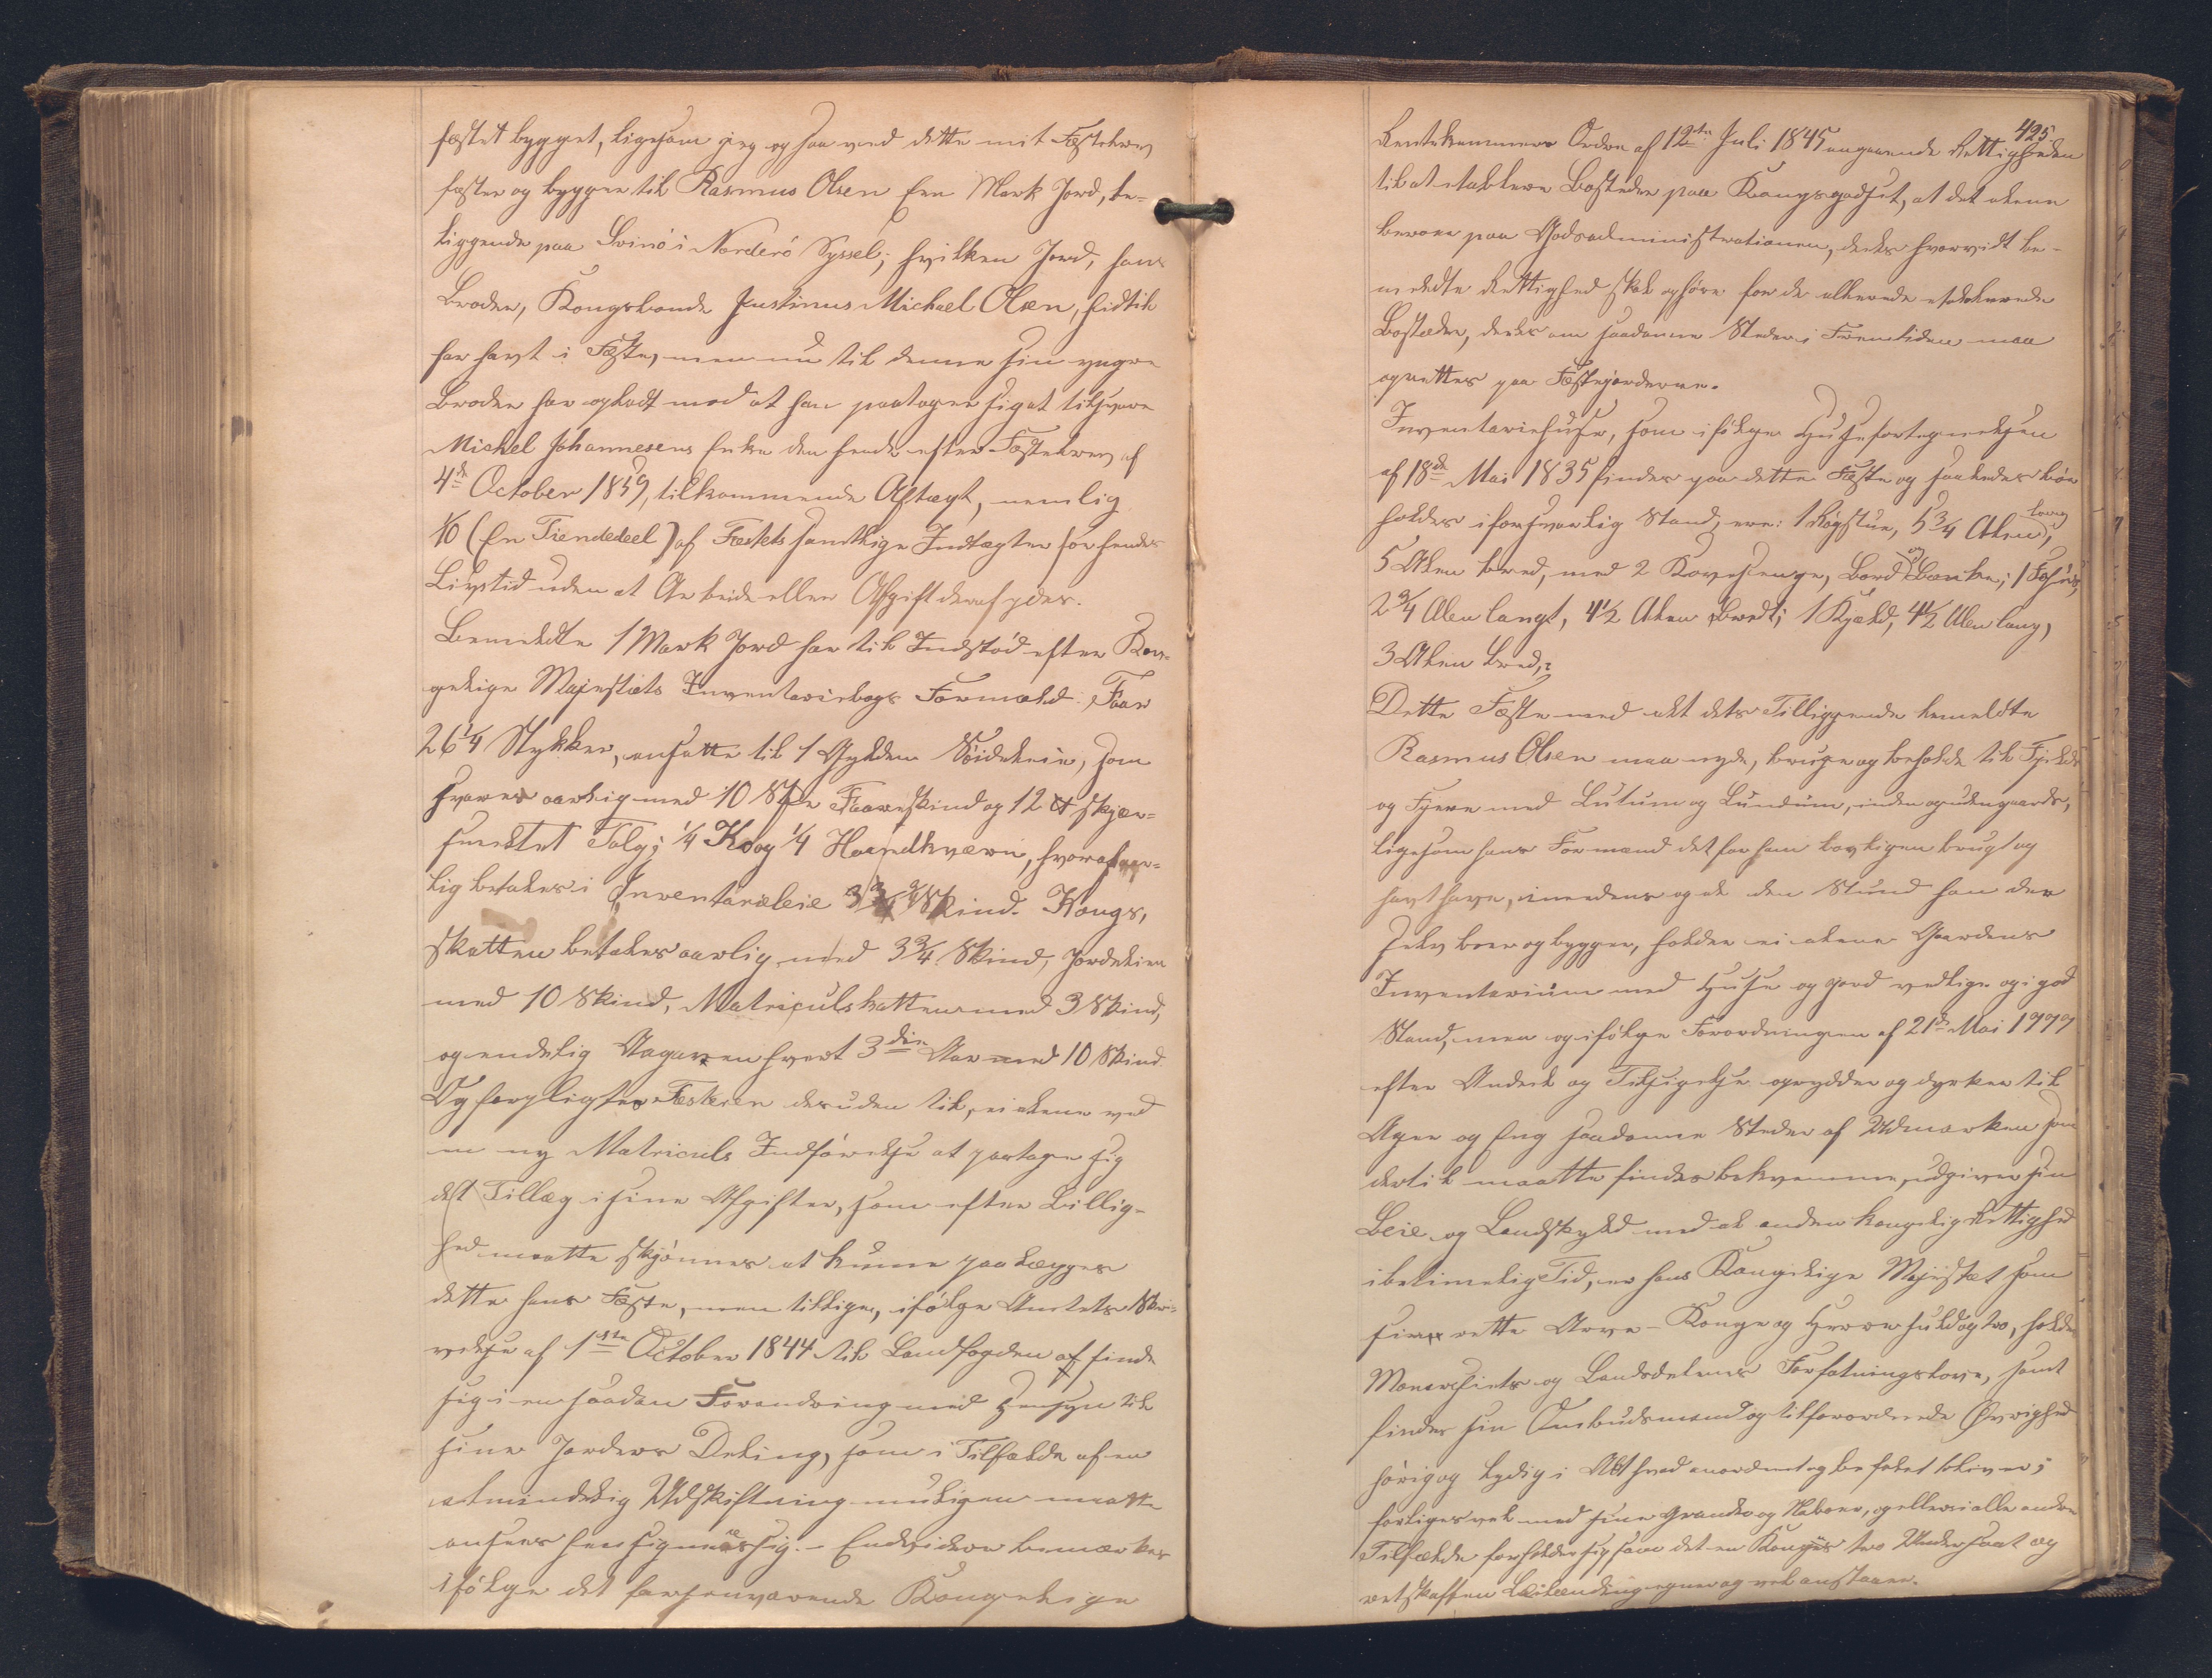 fæstet bygget, ligesom jeg og saa ved dette mit Fæstebrev
fæster og bygger til Rasmus Olsen Een Mark Jord, be-
liggende paa Svinö i Norderö Syssel; hvilken Jord, hans
Broder, Kongsbonde Justinus Michael Olsen, hidtil
har havt i Fæste, men nu til denne sin yngre
Broder har opladt mod at han paatager sig at tilsvare
Michel Johannesens Enke den hende efter Fæstebrev af
4de October 1859, tilkommende Aftægt, nemlig
1/10 (En Tiendedeel) af Fæstets samtlige Indtægter for hendes
Livstid uden at Arbeide eller Afgift deraf ydes.
Bemeldte 1 Mark Jord har til Indstöd efter Kon-
gelige Majestæts Inventariebogs Formeld: Faar
26 1/4 Stykker, ansatte til 1 Gylden Söideleie, som
svares aarlig med 10 Stk Faareskind og 12 ℔ skjær-
smeltet Talg; 1/4 Ko og 1/4 Haandkværn, hvoraf aar-
lig betales i Inventarieleie 3 3/4 Skind. Kongs,
skatten betales aarlig med 3 3/4 Skind, Jordeleien
med 10 Skind, Matriculskatten med 3 Skind,
og endelig Aagaven hvert 3die Aar med 10 Skind.
Og forpligtes Fæsteren desuden til, ei alene ved
en ny Matriculs Indförelse at paatage sig
det Tillæg i sine Afgifter, som efter Billig-
hed maatte skjönnes at kunne paalægges
dette hans Fæste, men tillige, ifölge Amtets Skri-
velse af 1ste October 1844 til Landfogden at finde
sig i en saadan Forandring med Hensyn til
sine Jorders Deling, som i Tilfælde af en
almindelig Udskiftning muligen maatte
ansees hensigmæssig. - Endvidere bemærkes
ifölge det forhenværende Kongelige
425
Rentekammers Ordre af 12te Juli 1845 angaaende Rettigheden
til at etablere Bosteder paa Kongsgodset, at det alene
beroer paa Godsadministrationen, deels hvorvidt be-
meldte Rettighed skal ophöre for de allerede etablerede
Bosteder, deels om saadanne Steder i Fremtiden maa
oprettes paa Fæstejorderne.
Inventariehuse, som ifölge Huusefortegnelsen
af 18de Mai 1835 findes paa dette Fæste og saaledes bör
holdes i forsvarlig Stand, ere: 1 Rögstue, 5 3/4 Alen lang,
5 Alen bred, med 2 Kovesenge, Bord og Bænke; 1 Fæhuus,
2 3/4 Alen langt, 4 1/2 Alen bredt; 1 Kjæld, 4 1/2 Alen lang,
3 Alen bred,;
Dette Fæste med alt dets Tilliggende bemeldte
Rasmus Olsen maa nyde, bruge og beholde til Fjelds
og Fjære med Lutum og Lundum, inden og udengaards,
ligesom hans Formænd det for ham lovligen brugt og
havt have, imedens og al den Stund han der
selv boer og bygger, holder ei alene Gaardens
Inventarium med Huse og Jord vedlige og i god
Stand, men og ifölge Forordningen af 21de Mai 1777
efter Andeel og Tilsigelse oprydder og dyrker til
Ager og Eng saadanne Steder af Udmarken som
dertil maatte findes bekvemme, udgiver sin
Leie og Landskyld med al anden kongelig Rettighed
i betimelig Tid, er hans Kongelige Majestæt som
sin rette Arve-Konge og Herre huld og tro, holder
Monarchiets og Landsdelens Forfatningslove, samt
findes sin Ombudsmand og tilforordnede Øvrighed
hörig og lydig i Alt hvad anordnet og befalet bliver;
forliges vel med sine Grander og Naboer, og ellers i alle andre
Tilfælde forholder sig som det en Konges tro Undersaat og
retskaffen Leilænding egner og vel anstaaer.